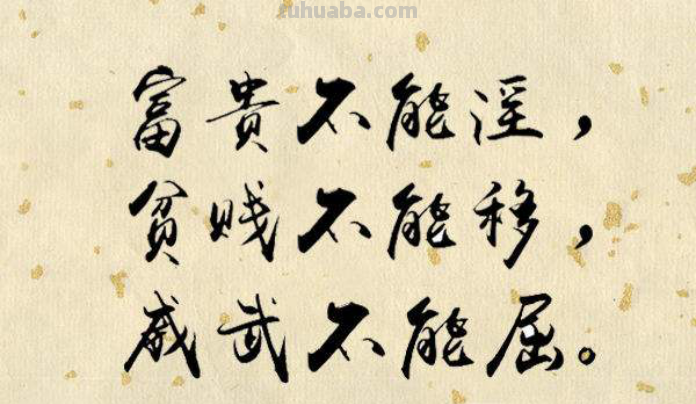 ruhuaba.com
富貴不能淫，
貧贱不能移，
威武不能屈。